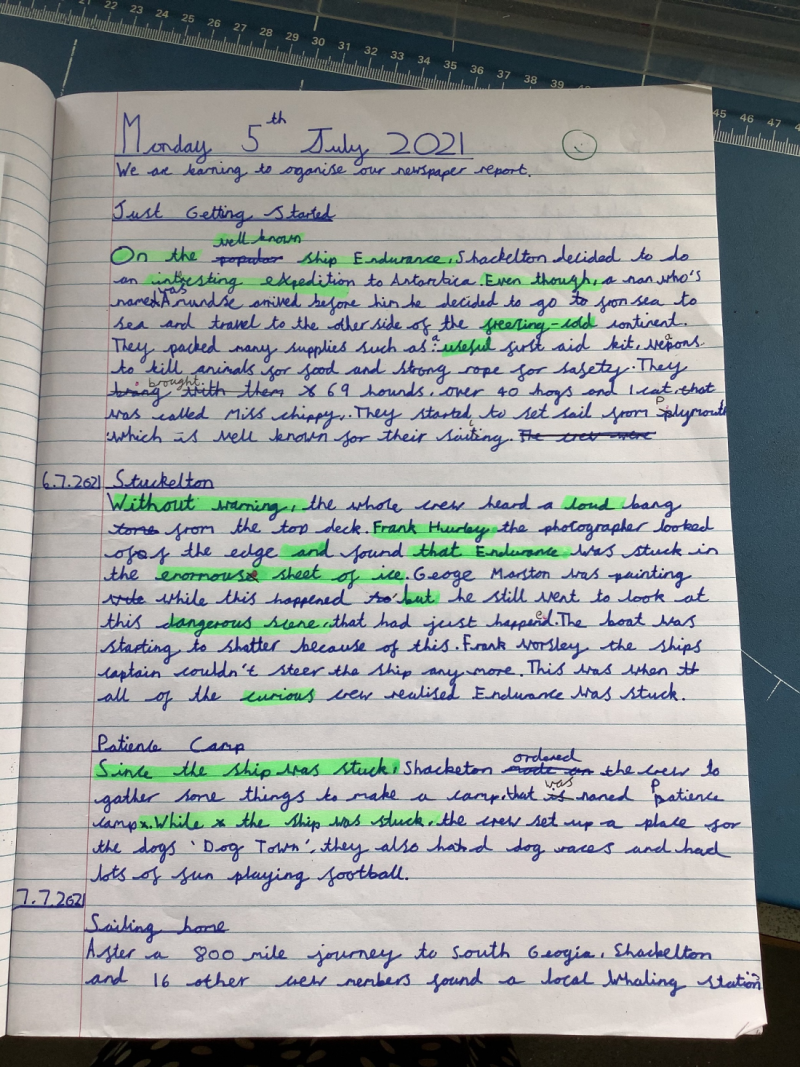 19 23 24 25 26 27 28 29 30 31 32 33 34 35 36 37 38 39 45 46 47
Monday 5th July 2021
We are learning to oganise our newspaper report.
Just Getting Started
well known
On the popular ship Endurance, Shackelton decided to do
an intresting expedition to Antarctica. Even though, a man who's
was
named Amundse arrived before him he decided to go to from sea to
sea and travel to the other side of the freezing-cold continent.
They packed many supplies such as: a useful first aid kit, weapons
to kill animals for food and strong rope for safety. They
brought
bring with them 69 hounds, over 40 hogs and 1 cat, that
was called Miss chippy. They started to set sail from Plymouth
which is well known for their sailing. The crew were
6.7.2021 Stuckelton
Without warning, the whole crew heard a loud bang
from the top deck. Frank Hurley the photographer looked
of the edge and found that Endurance was stuck in
the enormous sheet of ice. Geoge Marston was painting
while this happened but he still went to look at
this dangerous scene, that had just happened. The boat was
starting to shatter because of this. Frank Worsley the ships
captain couldn't steer the ship any more. This was when
all of the curious crew realised Endurance was stuck.
Patience Camp
ordered
Since the ship was stuck, Shacketon made an the crew to
was
gather some things to make a camp, that is named Patience
camp. While the ship was stuck, the crew set up a place for
the dogs 'Dog Town', they also had dog races and had
lots of fun playing football.
7.7.2021
Sailing home
After a 800 mile journey to South Geogia, Shackelton
and 16 other crew members found a local Whaling station